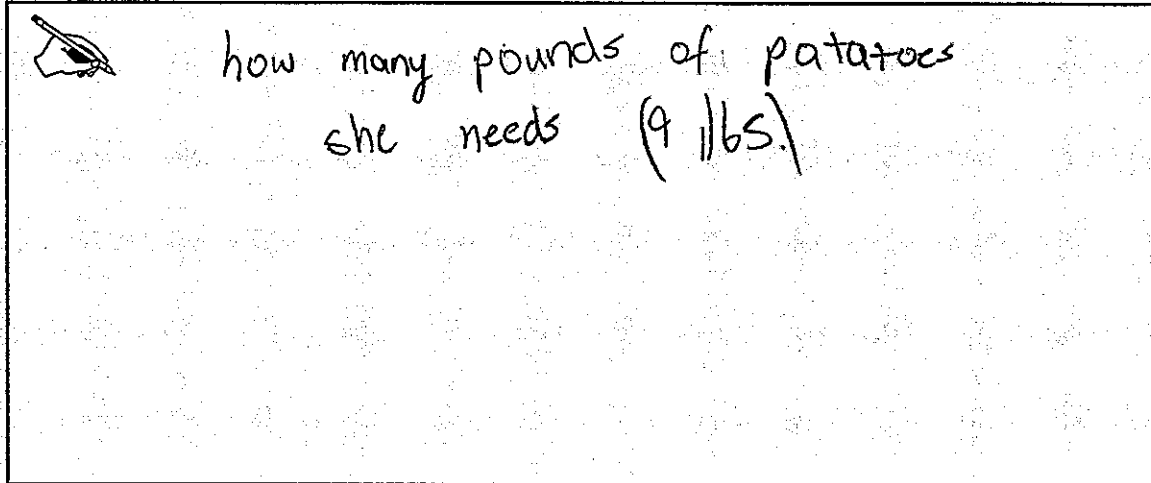 how many pounds of patatoes
she needs (9 lbs.)